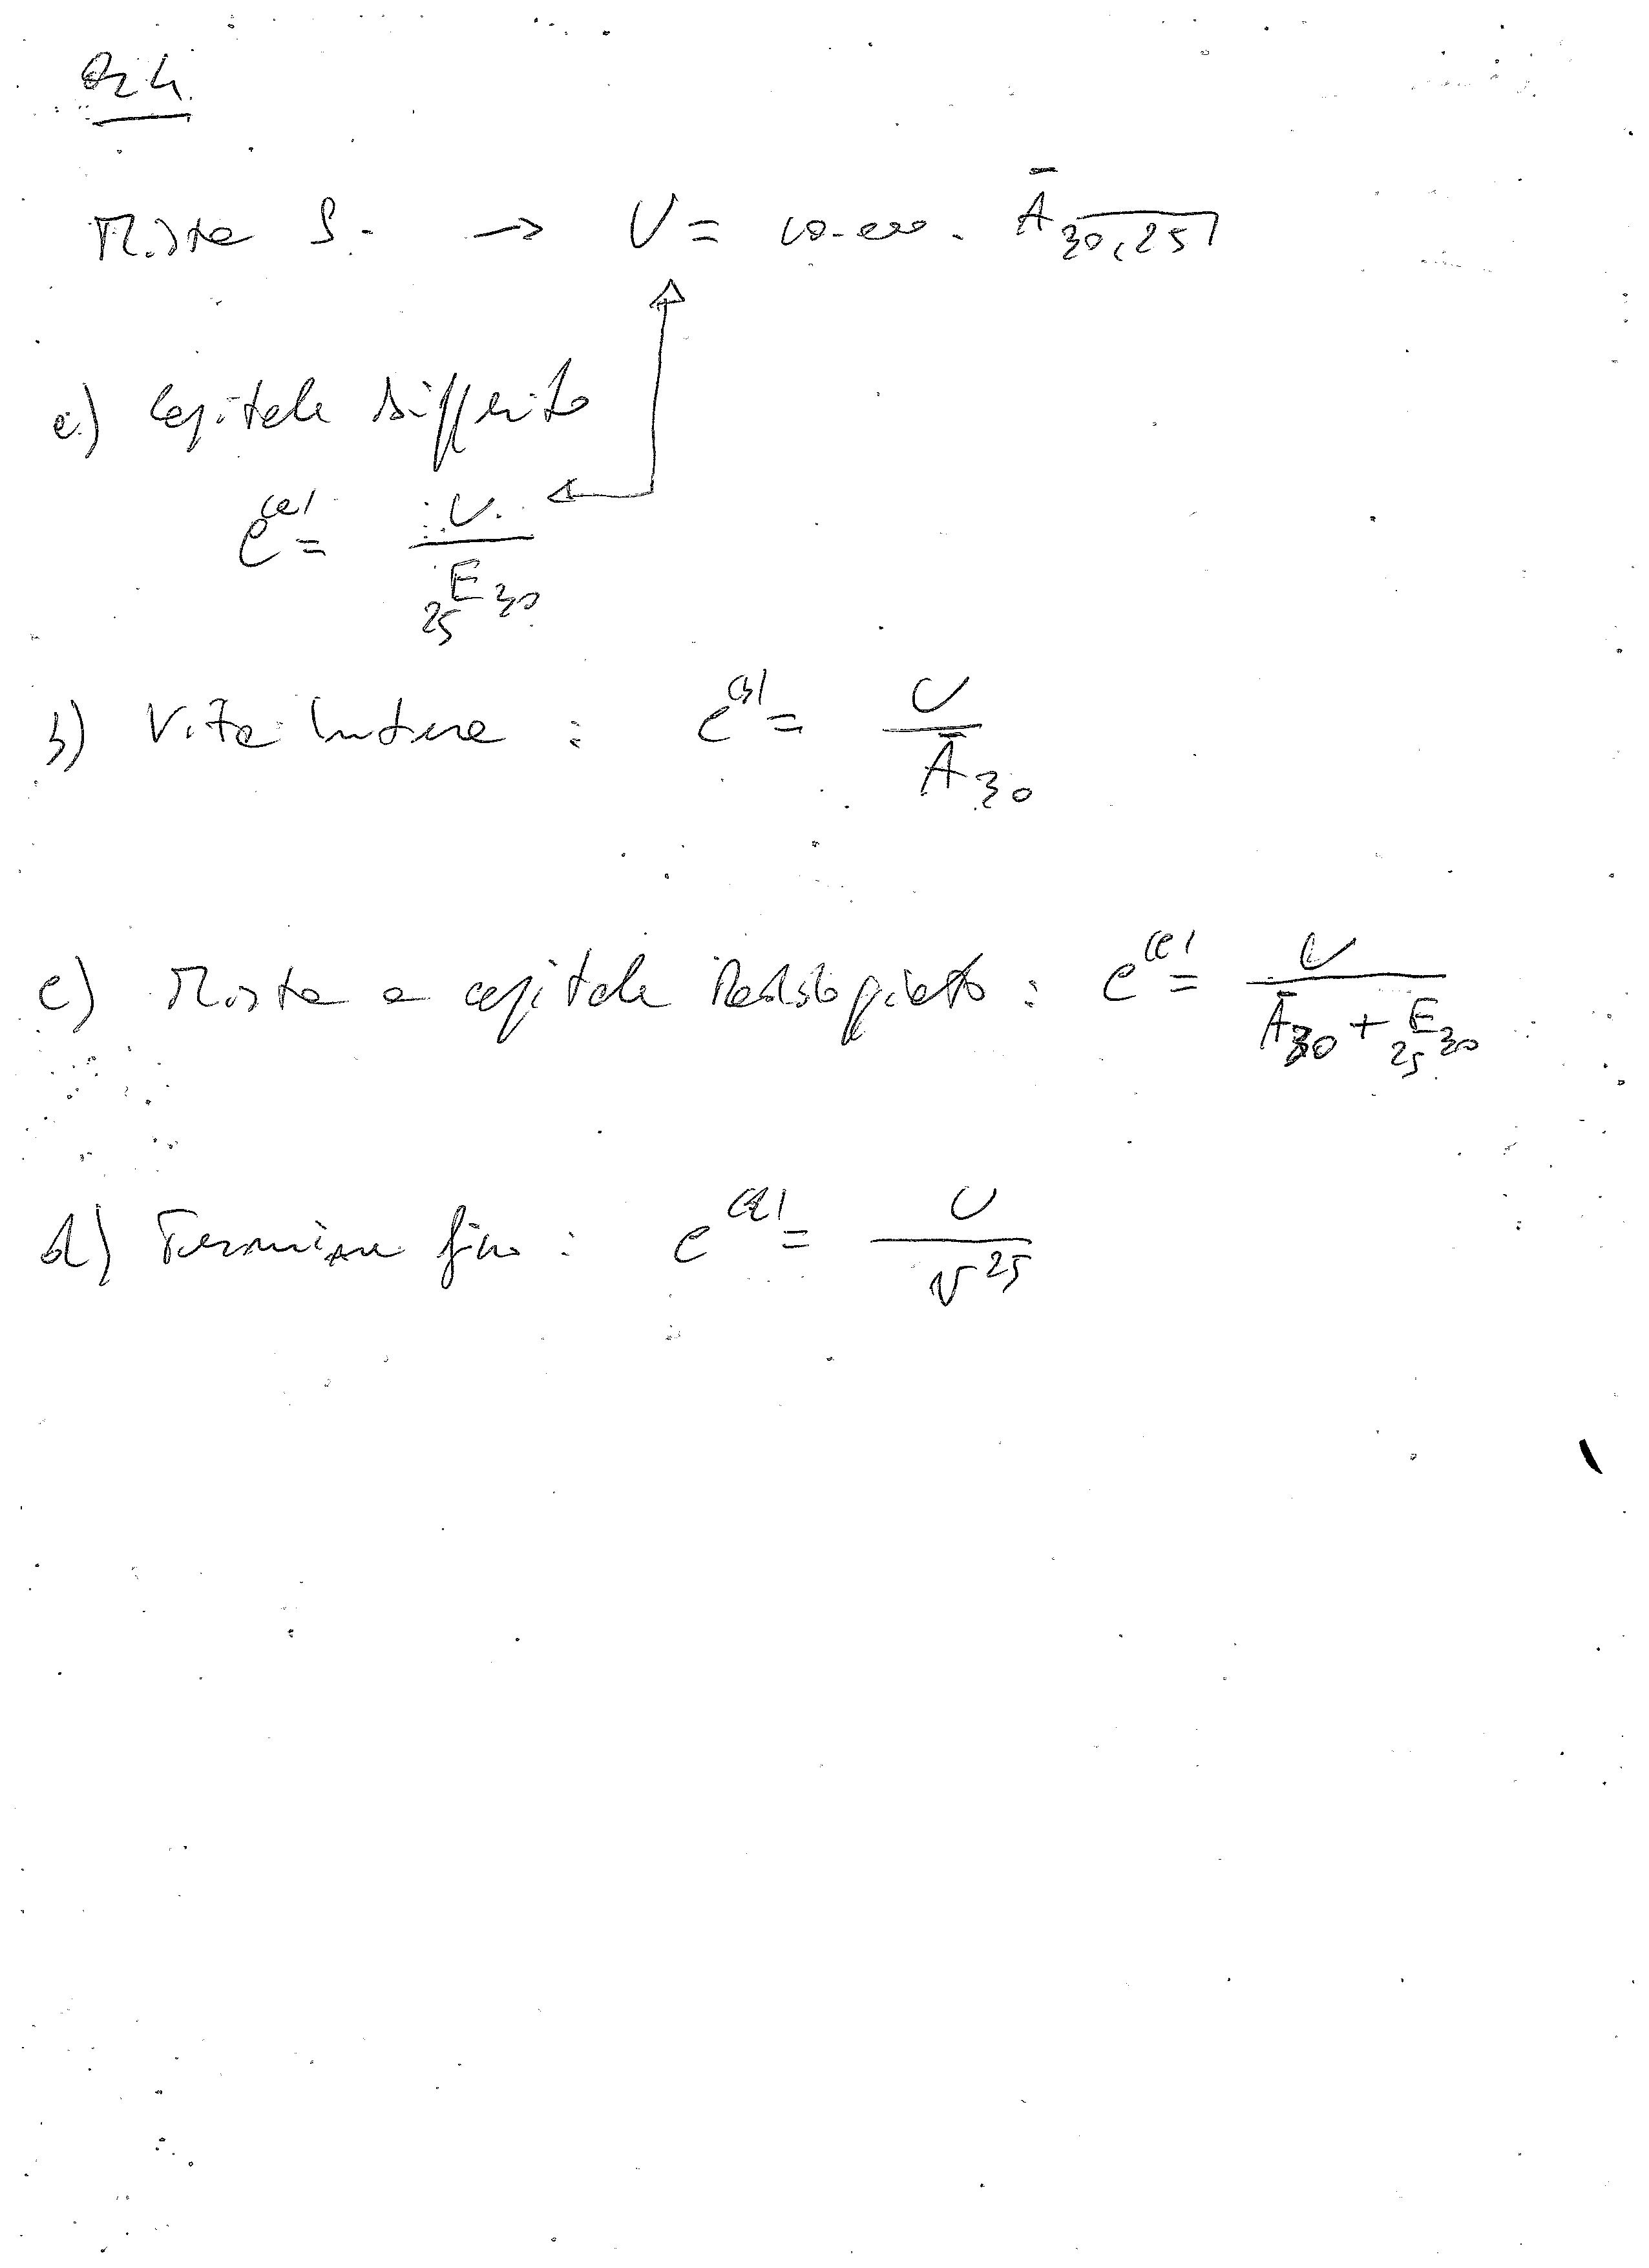 Mista S. → U = 10.000. Ā 30,25⌉
a) Capitale differito
C^(a) = U / 25E30
b) Vita Intera : C^(b) = U / Ā30
c) Mista a capitale Raddoppiato : C^(c) = U / Ā30 + 25E30
d) Termine fisso : C^(d) = U / v^25